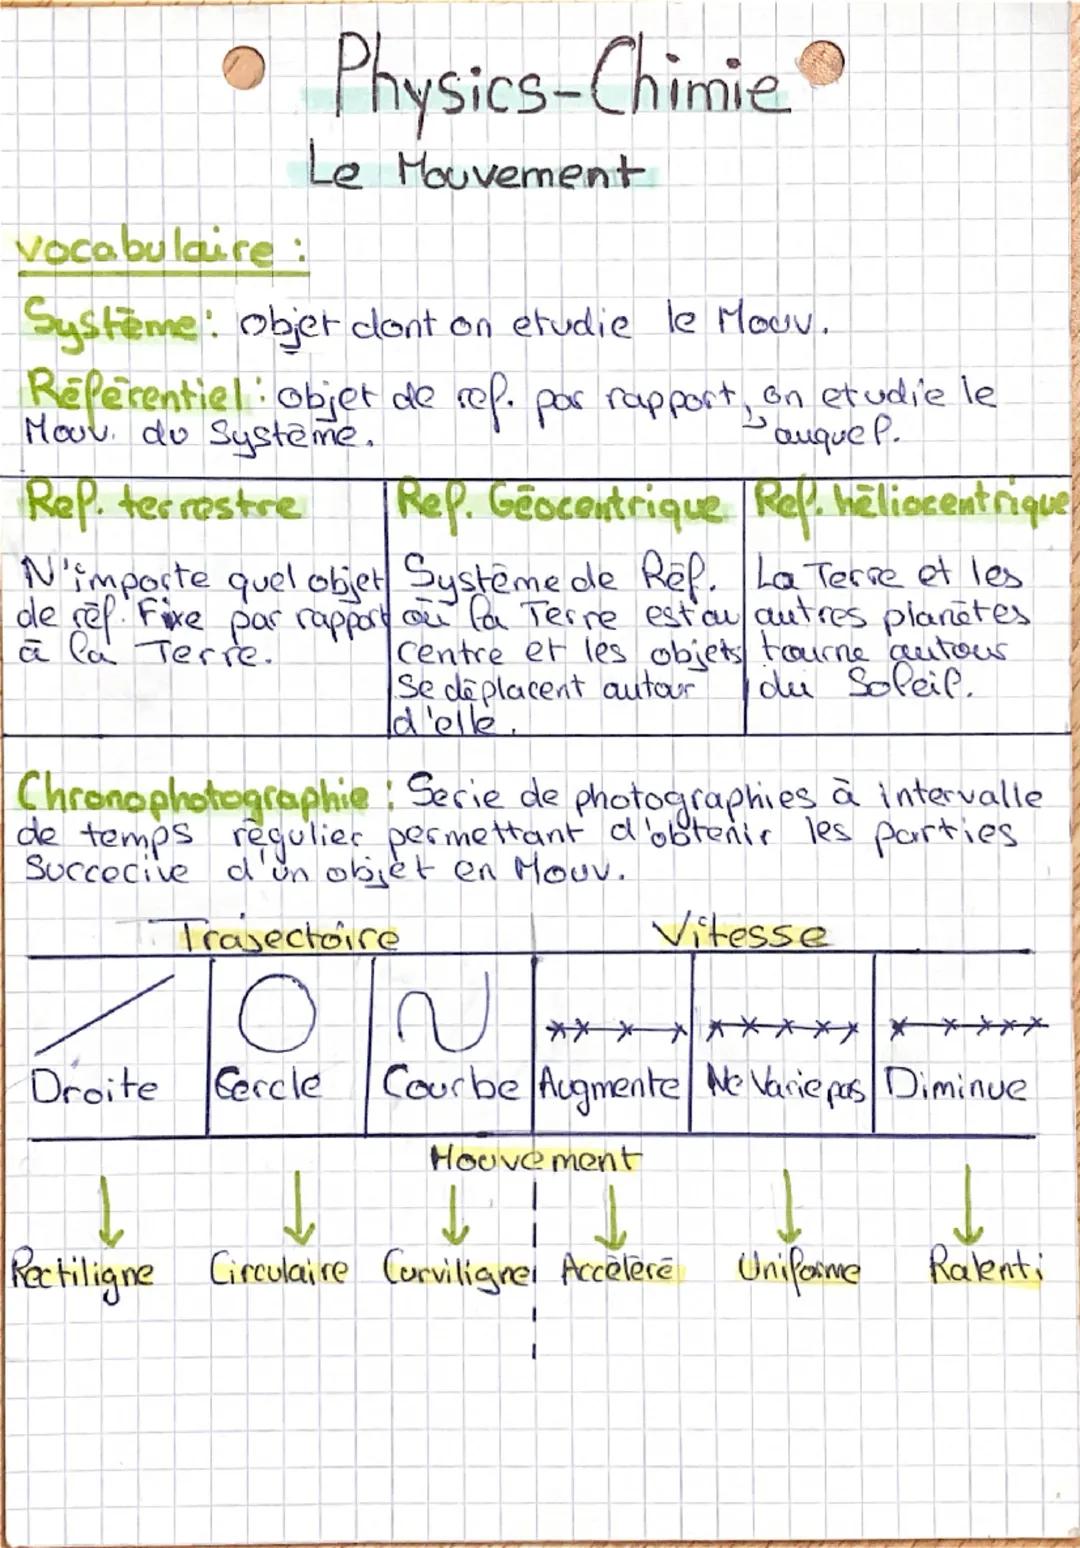 Physics-Chimie
Le Mouvement
vocabulaire :
Système : objet dont on etudie le Mouv.
Référentiel : objet de ref. par rapport, on etudie le
Mouv. du Système. auquel.
Ref. terrestre
N'importe quel objet
de réf. Fixe par rapport
à la Terre.
Ref. Géocentrique
Système de Réf.
où la Terre est au
centre et les objets
se déplacent autour
d'elle.
Ref. héliocentrique
La Terre et les
autres planètes
tourne autour
du Soleil.
Chronophotographie : Serie de photographies à intervalle
de temps régulier permettant d'obtenir les parties
Succecive d'un objet en Mouv.
Trajectoire Vitesse
Droite Cercle Courbe Augmente Ne Varie pas Diminue
Mouvement
Rectiligne Circulaire Curviligne Accéléré Uniforme Ralenti